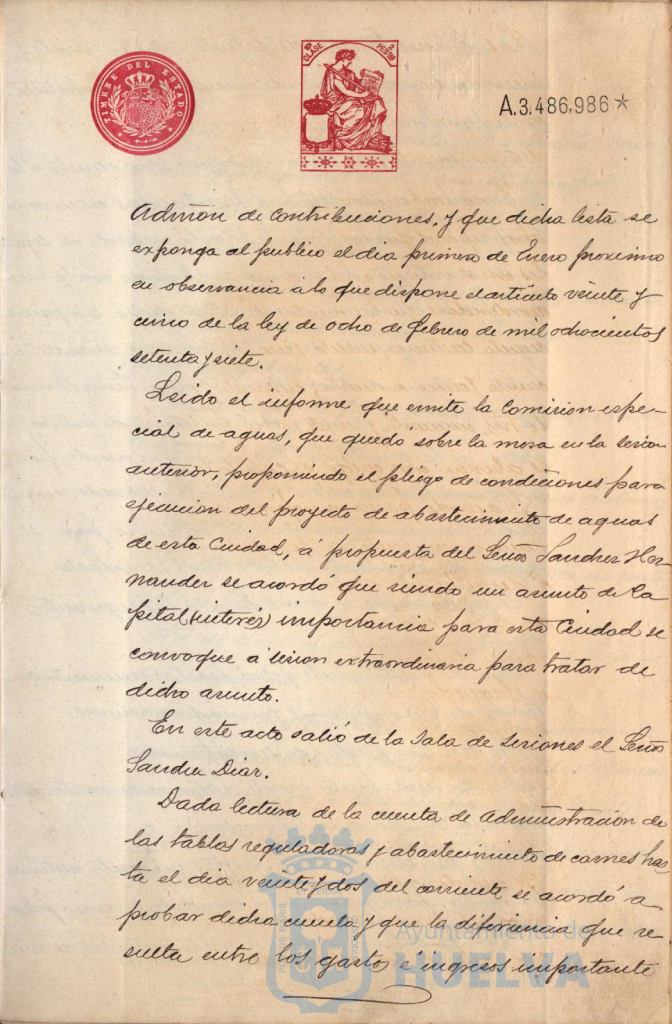 TIMBRE DEL ESTADO
10ª CLASE 2 PESTAS
A.3.486,986*
Admon de contribuciones, y que dicha lista se
exponga al publico el dia primero de Enero proximo
en observancia á lo que dispone el articulo veinte y
cinco de la ley de ocho de febrero de mil ochocientos
setenta y siete.
Leido el informe que emite la Comision espe-
cial de aguas, que quedó sobre la mesa en la sesion
anterior, proponiendo el pliego de condiciones para
ejecucion del proyecto de abastecimiento de aguas
de esta Ciudad, á propuesta del Señor Sanchez Her-
nandez se acordó que siendo un asunto de Ca
pital (interés) importancia para esta Ciudad se
convoque á sesion extraordinaria para tratar de
dicho asunto.
En este acto salió de la Sala de sesiones el Señor
Sanchez Diaz.
Dada lectura de la cuenta de Administracion de
las tablas reguladoras y abastecimiento de carnes has
ta el dia veinte y dos del corriente se acordó a
probar dicha cuenta y que la diferencia que re
sulta entre los gastos é ingresos importante
Ayuntamiento de
HUELVA